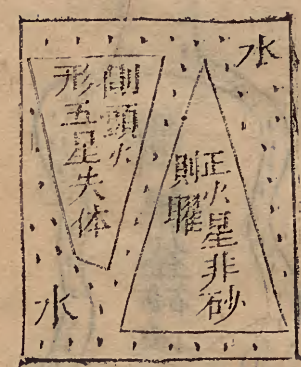 水
正火星非砂
則曜
頭火
形五星失体
水